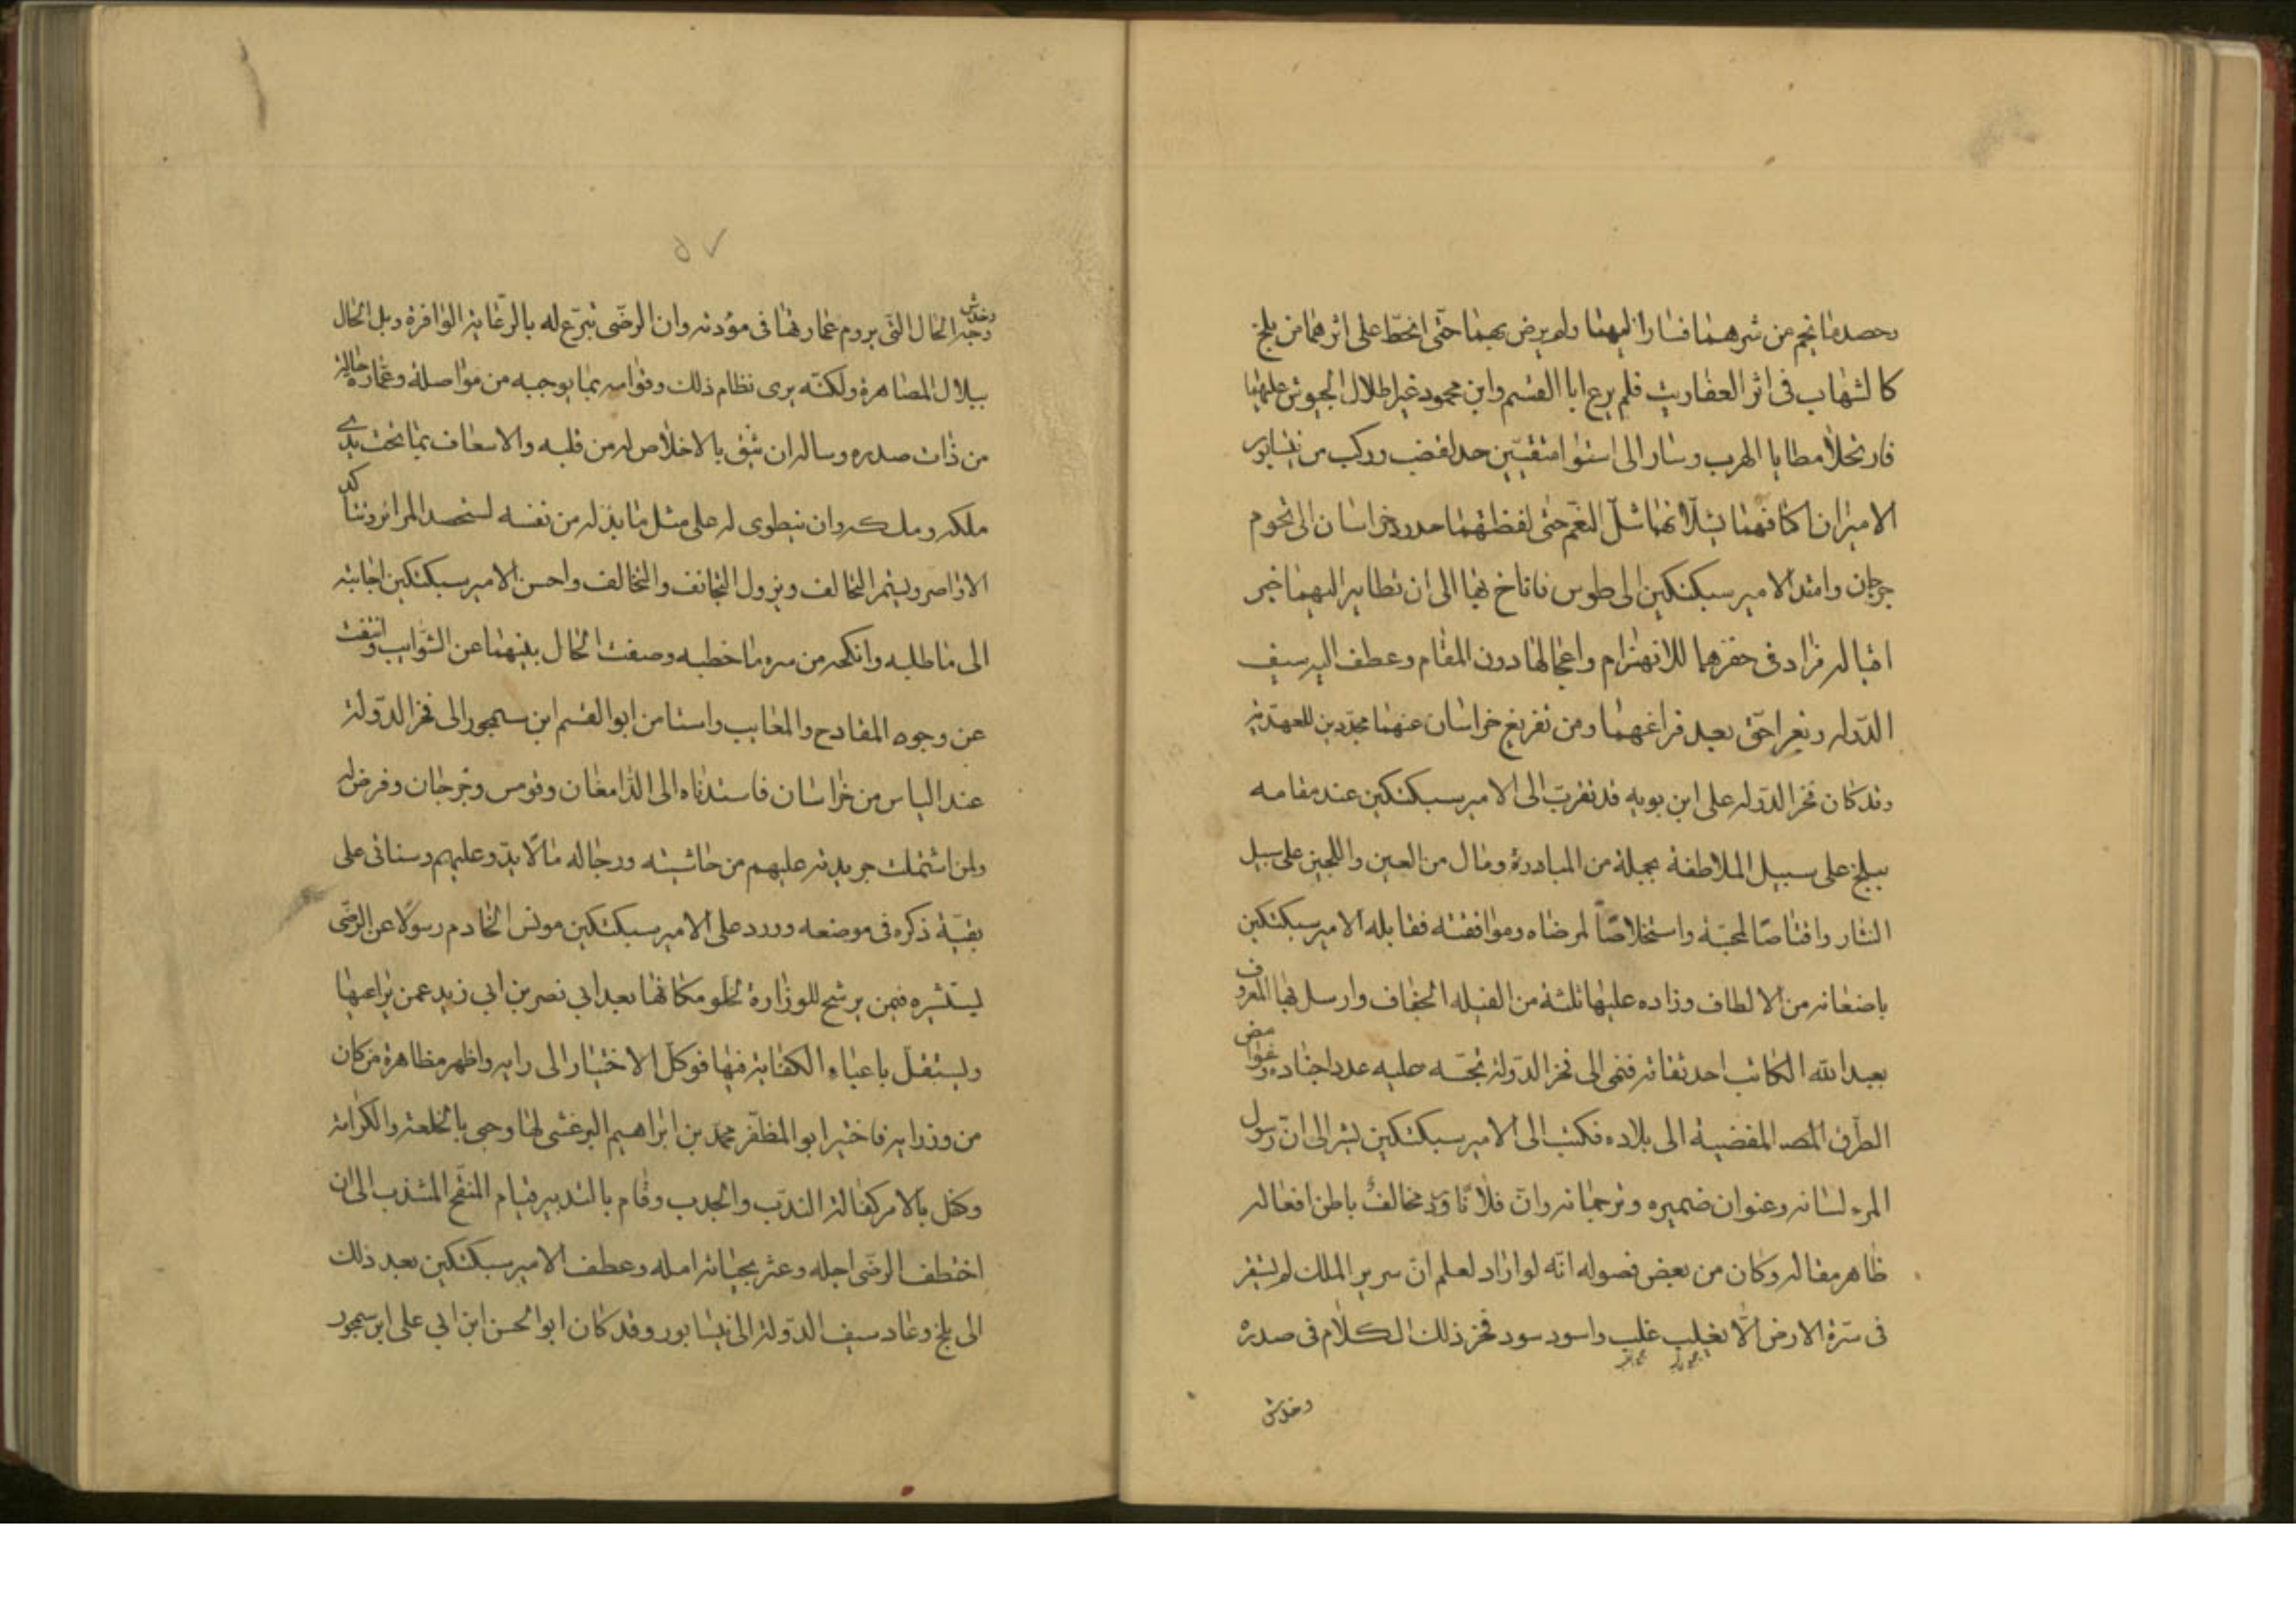 وحصد ما نجم من شرهما فسارا اليهما ولم يرض بهما حتّى انحطّ على اثرهما من بلخ
كالشهاب فى اثر العفاريت فلم يرع ابا القسم وابن محمود غير اطلال الجيوش عليهما
فارتحلا مطايا الهرب وسارا الى استوا متقين حد الغضب وركب من نيسابور
الاميران اكتافهما يشلّانهما شلّ النعم حتى لفظتهما حدود خراسان الى تخوم
جرجان وامتد الامير سبكتكين الى طوس فاناخ بها الى ان تطاير اليهما خبر
اقباله فزاد فى حفزهما للانهزام واعجالهما دون المقام وعطف اليه سيف
الدوله وبغراجق بعد فراغهما ومن تفريغ خراسان عنهما مجددين للعهد به
وقد كان فخر الدوله على ابن بويه قد تقرب الى الامير سبكتكين عند مقامه
ببلخ على سبيل الملاطفة بجملة من المبادرة ومال من العين واللجين على سبيل
النثار واقتناصًا لمحبّة واستخلاصًا لمرضاه وموافقته فقابله الامير سبكتكين
باضعافه من الالطاف وزاده عليها ثلثة من الفيله الخفاف وارسل بها المعروف
بعبد الله الكاتب احد ثقاته فنمى الى فخر الدولة تجسّسه عليه عدد اجناده وغوامض
الطرق المفضية الى بلاده فكتب الى الامير سبكتكين يشير الى ان رسول
المرء لسانه وعنوان ضميره وترجمانه وان فلانًا مخالف باطن افعاله
ظاهر مقاله وكان من بعض فصوله انه لو اراد لعلم ان سرير الملك لم يستقر
فى سرّة الارض الّا بغلب غلب واسود سود فحز ذلك الكلام فى صدره
وخدش
وخدش وجه الحال التى يروم عمارتها فى مؤدته وان الرضى تبرّع له بالرّغاية الوافرة وبل الحال
ببلال المصاهرة ولكنّه يرى نظام ذلك وقوامه بما يوجبه من مواصلة وعمارة حالة
من ذات صدره وساله ان يثق بالاخلاص له من قلبه والاسعاف بما تحت يدى
ملكه وملكه وان ينطوى له على مثل ما بذله من نفسه لستحصد المراير وتتاكد
الاواصر ويستمر التحالف ويزول التجانف والتخالف واحسن الامير سبكتكين اجابته
الى ما طلبه وانكحه من سره ما خطبه وصفت الحال بينهما عن الشوايب وانتفت
عن وجوه المقادح والمعايب واستامن ابو القسم ابن سيمجور الى فخر الدولة
عند الياس من خراسان فاستدناه الى الدامغان وقومس وجرجان وفرض له
ولمن اشتملت جريدته عليهم من حاشيته ورجاله مالًا يدرّ عليهم وسناتى على
بقيّة ذكره فى موضعه وورد على الامير سبكتكين مونس الخادم رسولًا عن الرضى
ليستشيره فيمن يرشح للوزارة لخلو مكانها بعد ابى نصر بن ابى زيد عمن يراعيها
ويستقل باعباء الكفاية فيها فوكل الاختيار الى رايه واظهر مظاهرة من كان
من وزرايه فاختير ابو المظفر محمد بن ابراهيم البرغشى لها وحبى بالخلعة والكرامة
وكفل بالامر كفالة الندّب والجدب وقام بالتدبير قيام المنقح المشذب الى ان
اختطف الرضى اجله وعثر بحياته امله وعطف الامير سبكتكين بعد ذلك
الى بلخ وعاد سيف الدولة الى نيسابور وقد كان ابو الحسن ابن ابى على ابن سيمجور